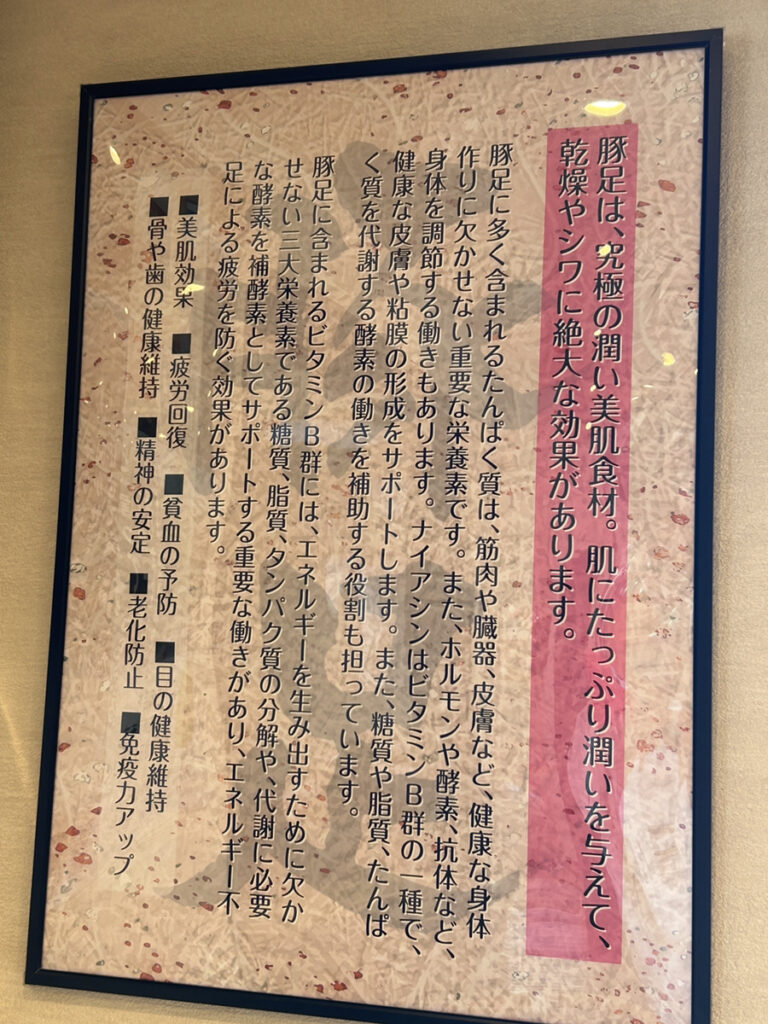 豚足は、究極の潤い美肌食材。肌にたっぷり潤いを与えて、
乾燥やシワに絶大な効果があります。
豚足に多く含まれるたんぱく質は、筋肉や臓器、皮膚など、健康な身体
作りに欠かせない重要な栄養素です。また、ホルモンや酵素、抗体など、
身体を調節する働きもあります。ナイアシンはビタミンB群の一種で、
健康な皮膚や粘膜の形成をサポートします。また、糖質や脂質、たんぱ
く質を代謝する酵素の働きを補助する役割も担っています。
豚足に含まれるビタミンB群には、エネルギーを生み出すために欠か
せない三大栄養素である糖質、脂質、タンパク質の分解や、代謝に必要
な酵素を補酵素としてサポートする重要な働きがあり、エネルギー不
足による疲労を防ぐ効果があります。
■美肌効果 ■疲労回復 ■貧血の予防 ■目の健康維持
■骨や歯の健康維持 ■精神の安定 ■老化防止 ■免疫力アップ
豚足